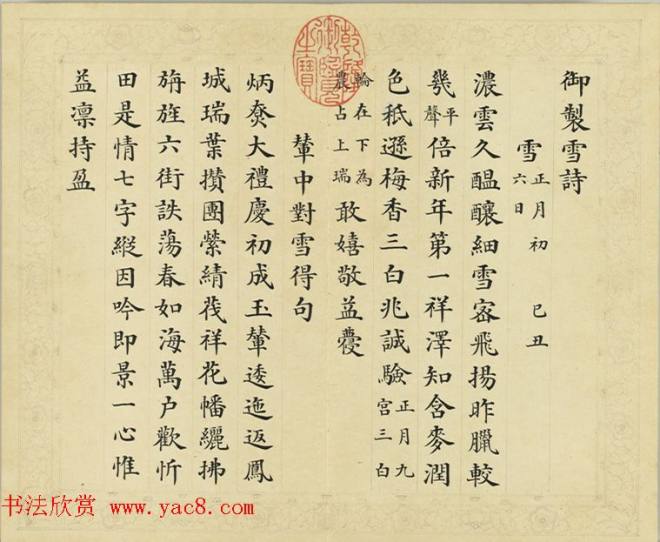 御製雪詩
雪 正月初六日 己丑
濃雲久醖釀細雪宻飛揚昨臘較
幾平聲倍新年第一祥澤知含麥潤
色秪遜梅香三白兆誠驗正月九宫三白
輪在下為農占上瑞敢嬉敬益蘉
輦中對雪得句
炳尞大禮慶初成玉輦逶迤返鳳
城瑞葉攢團縈綪茷祥花幡纚拂
旃旌六街詄蕩春如海萬户歡忻
田是情七字縱因吟即景一心惟
益凛持盈
乾隆御覽之寶
书法欣赏 www.yac8.com